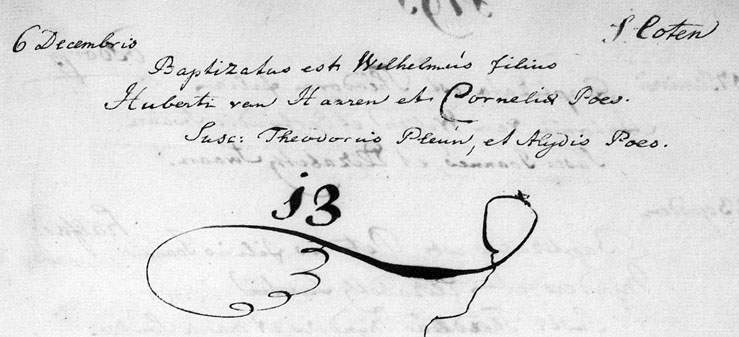 6 Decembrio Sloten
Baptizatus est Wilhelmus filius
Huberti van Harren et Cornelia Poes.
Susc: Theodorus Pleún, et Alydis Poes.
13